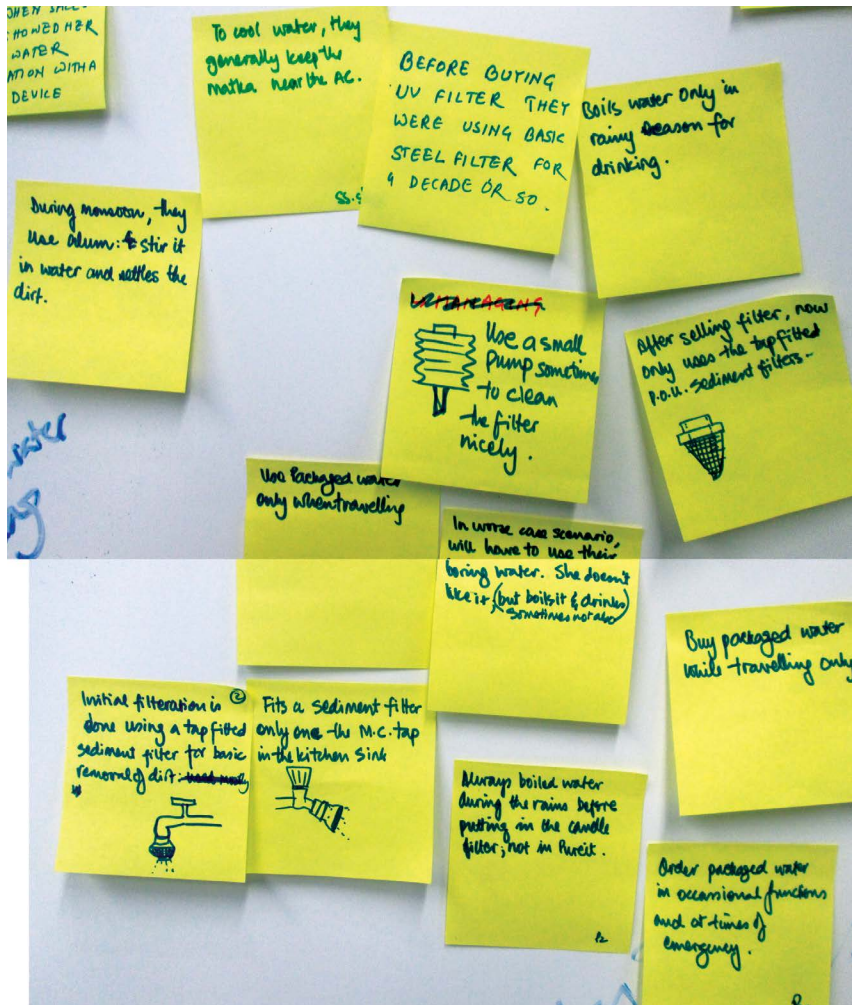 HOWED HER
WATER
ATION WITH A
DEVICE
To cool water, they
generally keep the
matka near the AC.
BEFORE BUYING
UV FILTER THEY
WERE USING BASIC
STEEL FILTER FOR
A DECADE OR SO.
Boils water only in
rainy season for
drinking.
During monsoon, they
use alum: stir it
in water and settles the
dirt.
Use a small
pump sometimes
to clean
the filter
nicely.
After selling filter, now
only uses the tap fitted
P.O.U. sediment filters.
water
Use Packaged water
only when travelling
In worse case scenario,
will have to use their
boring water. She doesn't
like it (but boils it & drinks)
sometimes not also
Buy packaged water
while travelling only
Initial filteration is
done using a tap fitted
sediment filter for basic
removal of dirt.
2
Fits a sediment filter
only one the M.C. tap
in the kitchen sink
Always boiled water
during the rains before
putting in the candle
filter, not in Pureit.
P2
Order packaged water
in occassional functions
and at times of
emergency.